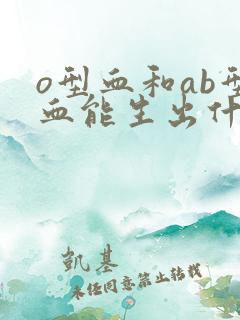 o型血和ab型
血能生出什
凯基
未经同意禁止转载